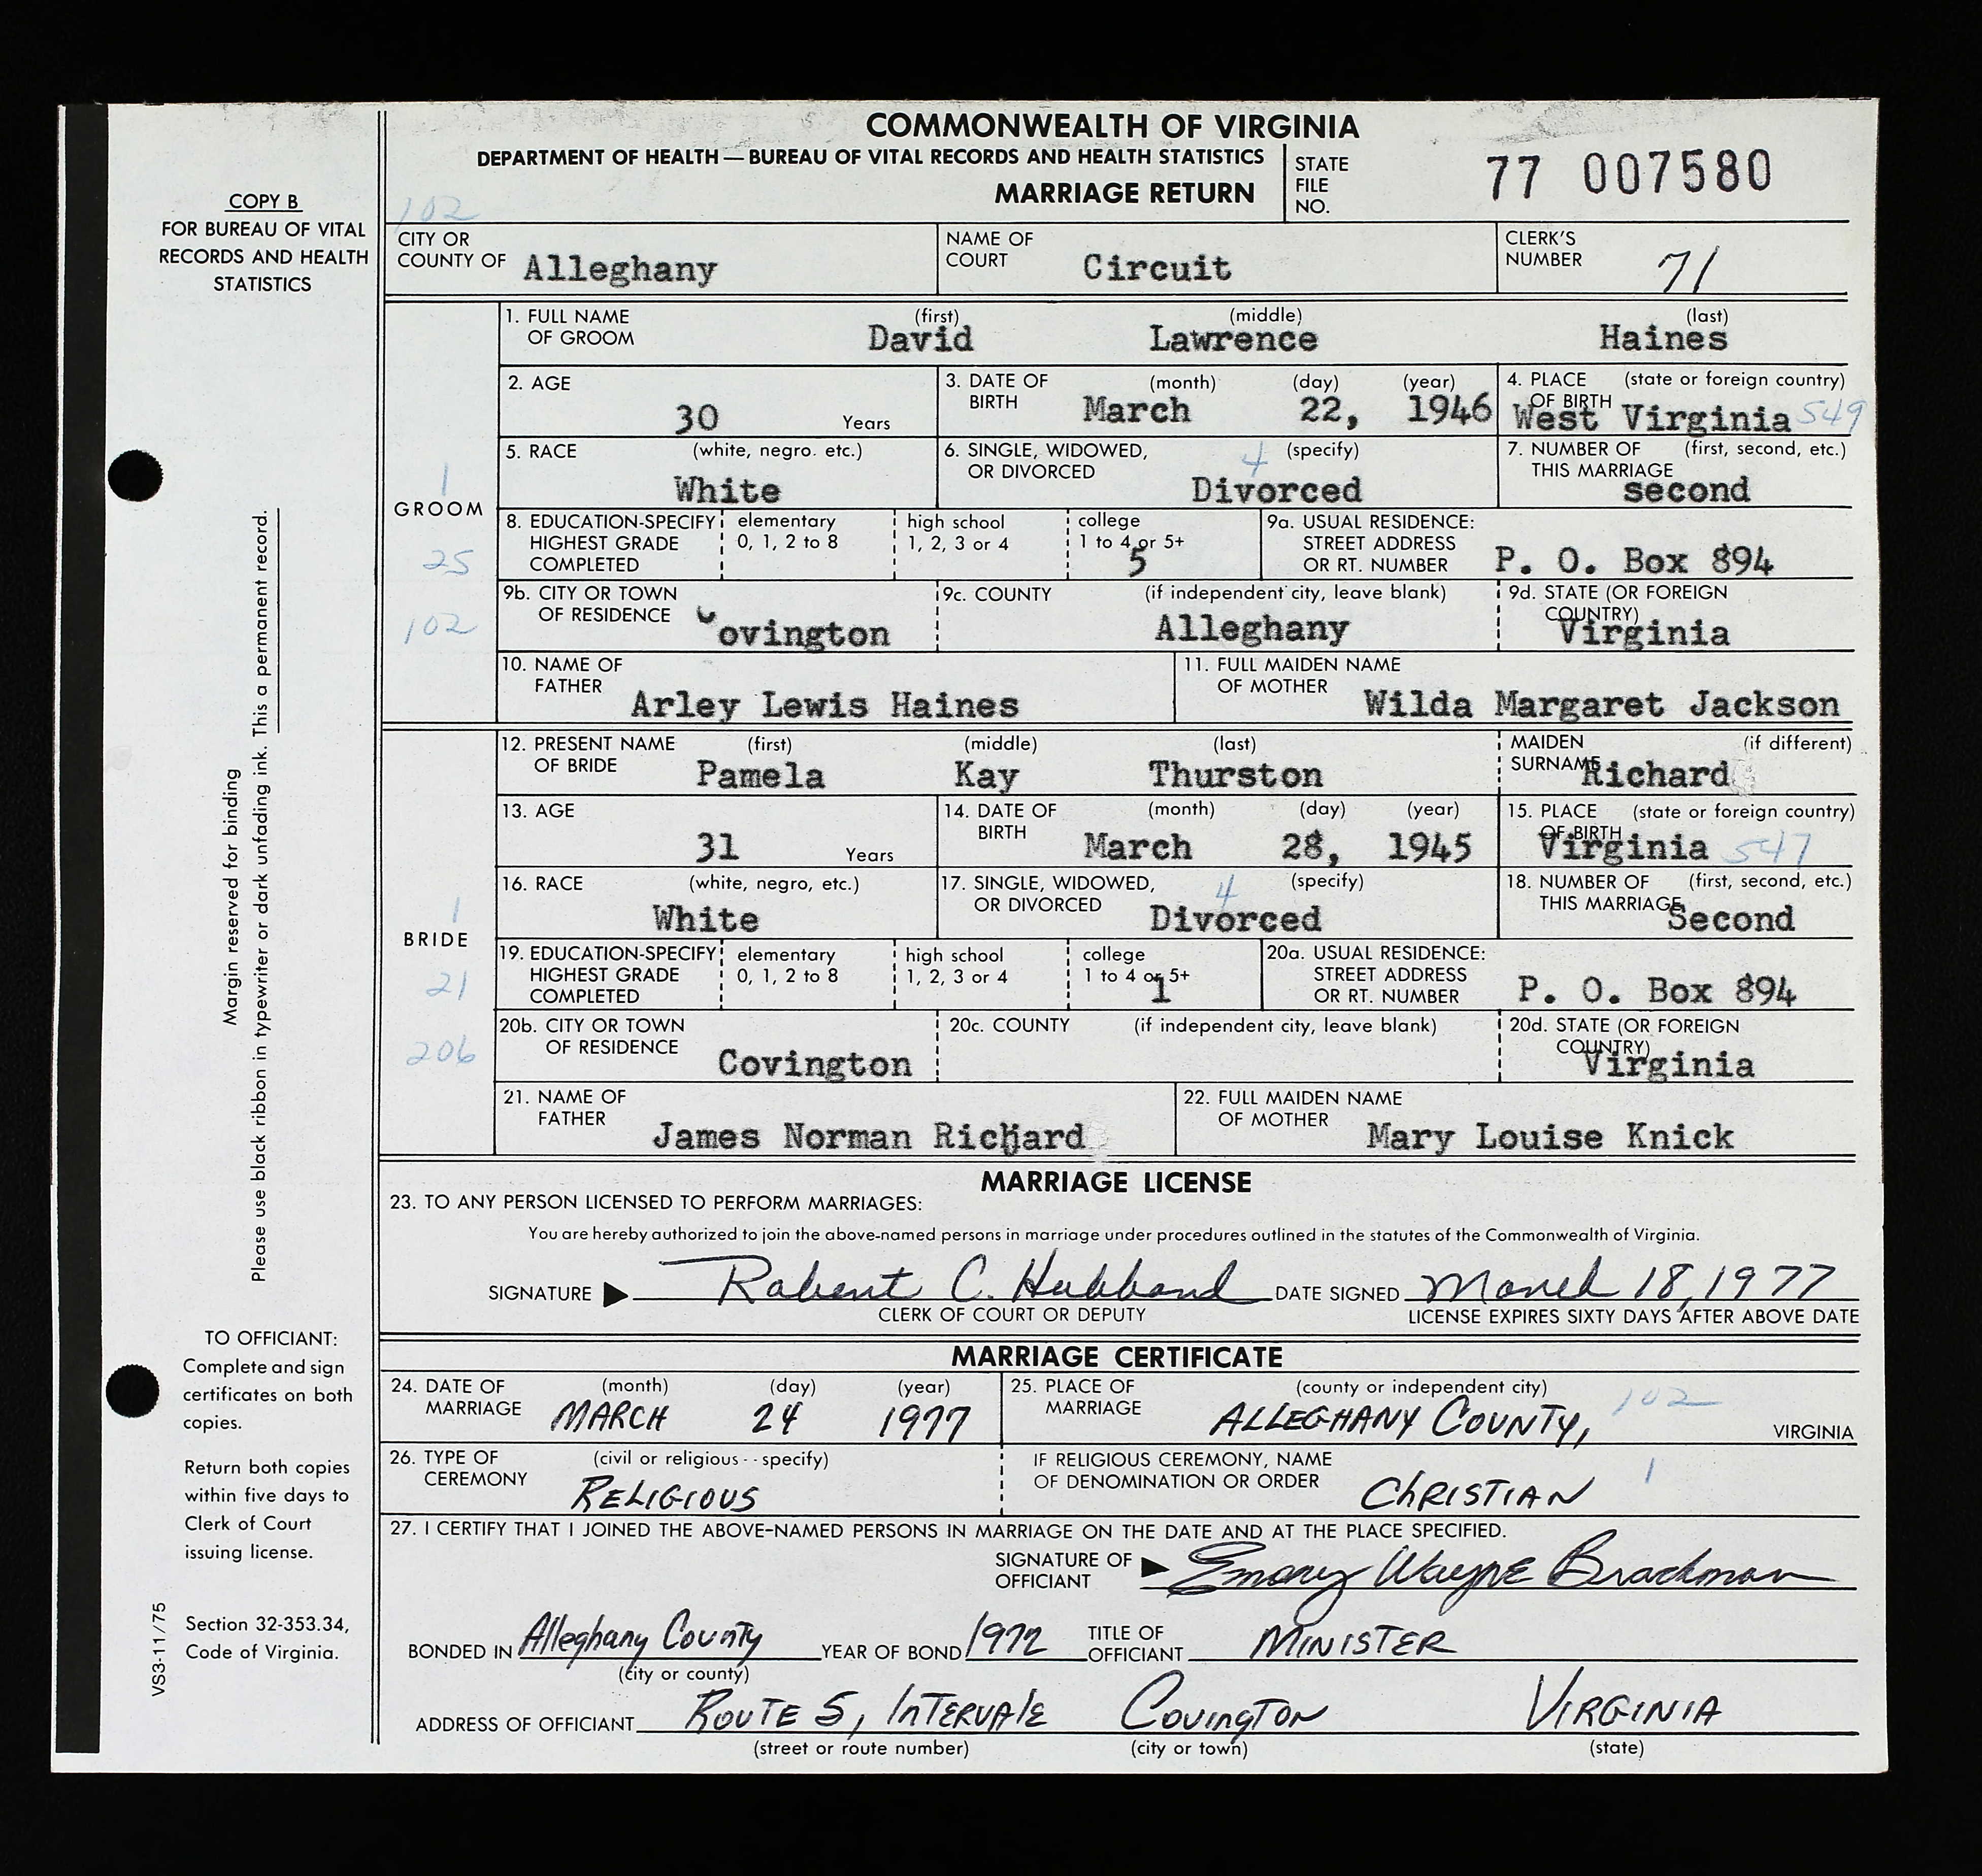 COMMONWEALTH OF VIRGINIA
DEPARTMENT OF HEALTH — BUREAU OF VITAL RECORDS AND HEALTH STATISTICS
MARRIAGE RETURN
STATE FILE NO. 77 007580
COPY B
FOR BUREAU OF VITAL
RECORDS AND HEALTH
STATISTICS
102
CITY OR COUNTY OF Alleghany
NAME OF COURT Circuit
CLERK'S NUMBER 71
Margin reserved for binding
Please use black ribbon in typewriter or dark unfading ink. This a permanent record.
1
GROOM
25
102
1. FULL NAME OF GROOM (first) David (middle) Lawrence (last) Haines
2. AGE 30 Years
3. DATE OF BIRTH (month) March (day) 22, (year) 1946
4. PLACE OF BIRTH (state or foreign country) West Virginia 549
5. RACE (white, negro. etc.) White
6. SINGLE, WIDOWED, OR DIVORCED 4 (specify) Divorced
7. NUMBER OF THIS MARRIAGE (first, second, etc.) second
8. EDUCATION-SPECIFY HIGHEST GRADE COMPLETED
elementary 0, 1, 2 to 8
high school 1, 2, 3 or 4
college 1 to 4 or 5+ 5
9a. USUAL RESIDENCE: STREET ADDRESS OR RT. NUMBER P. O. Box 894
9b. CITY OR TOWN OF RESIDENCE Covington
9c. COUNTY (if independent city, leave blank) Alleghany
9d. STATE (OR FOREIGN COUNTRY) Virginia
10. NAME OF FATHER Arley Lewis Haines
11. FULL MAIDEN NAME OF MOTHER Wilda Margaret Jackson
1
BRIDE
21
206
12. PRESENT NAME OF BRIDE (first) Pamela (middle) Kay (last) Thurston
MAIDEN SURNAME (if different) Richard
13. AGE 31 Years
14. DATE OF BIRTH (month) March (day) 28, (year) 1945
15. PLACE OF BIRTH (state or foreign country) Virginia 547
16. RACE (white, negro, etc.) White
17. SINGLE, WIDOWED, OR DIVORCED 4 (specify) Divorced
18. NUMBER OF THIS MARRIAGE (first, second, etc.) Second
19. EDUCATION-SPECIFY HIGHEST GRADE COMPLETED
elementary 0, 1, 2 to 8
high school 1, 2, 3 or 4
college 1 to 4 or 5+ 1
20a. USUAL RESIDENCE: STREET ADDRESS OR RT. NUMBER P. O. Box 894
20b. CITY OR TOWN OF RESIDENCE Covington
20c. COUNTY (if independent city, leave blank)
20d. STATE (OR FOREIGN COUNTRY) Virginia
21. NAME OF FATHER James Norman Richard
22. FULL MAIDEN NAME OF MOTHER Mary Louise Knick
MARRIAGE LICENSE
23. TO ANY PERSON LICENSED TO PERFORM MARRIAGES:
You are hereby authorized to join the above-named persons in marriage under procedures outlined in the statutes of the Commonwealth of Virginia.
SIGNATURE Robert C. Hubbard DATE SIGNED March 18, 1977
CLERK OF COURT OR DEPUTY
LICENSE EXPIRES SIXTY DAYS AFTER ABOVE DATE
MARRIAGE CERTIFICATE
24. DATE OF MARRIAGE (month) MARCH (day) 24 (year) 1977
25. PLACE OF MARRIAGE (county or independent city) ALLEGHANY COUNTY, 102 VIRGINIA
26. TYPE OF CEREMONY (civil or religious - - specify) RELIGIOUS
IF RELIGIOUS CEREMONY, NAME OF DENOMINATION OR ORDER CHRISTIAN 1
27. I CERTIFY THAT I JOINED THE ABOVE-NAMED PERSONS IN MARRIAGE ON THE DATE AND AT THE PLACE SPECIFIED.
SIGNATURE OF OFFICIANT Emory Wayne Brackman
BONDED IN Alleghany County YEAR OF BOND 1972 TITLE OF OFFICIANT MINISTER
(city or county)
ADDRESS OF OFFICIANT ROUTE 5, INTERVALE COVINGTON VIRGINIA
(street or route number) (city or town) (state)
TO OFFICIANT:
Complete and sign
certificates on both
copies.
Return both copies
within five days to
Clerk of Court
issuing license.
Section 32-353.34,
Code of Virginia.
VS3-11/75